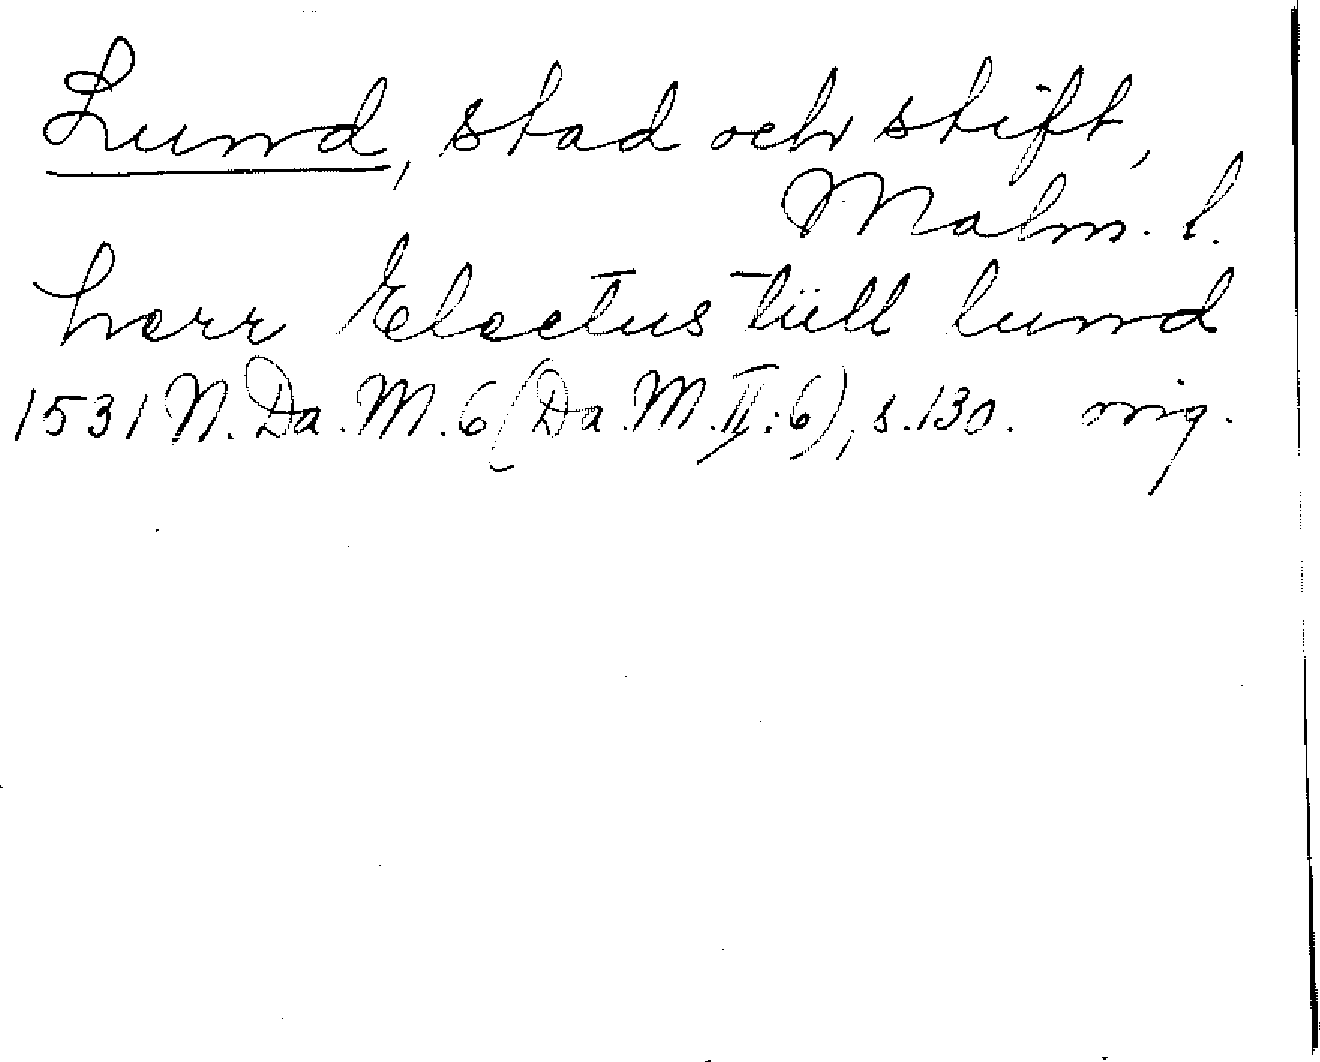 Lund, stad och stift,
Malm. l.
herr Electus tüll lund
1531 N. Da. M. 6 (Da. M. II: 6), s. 130. orig.